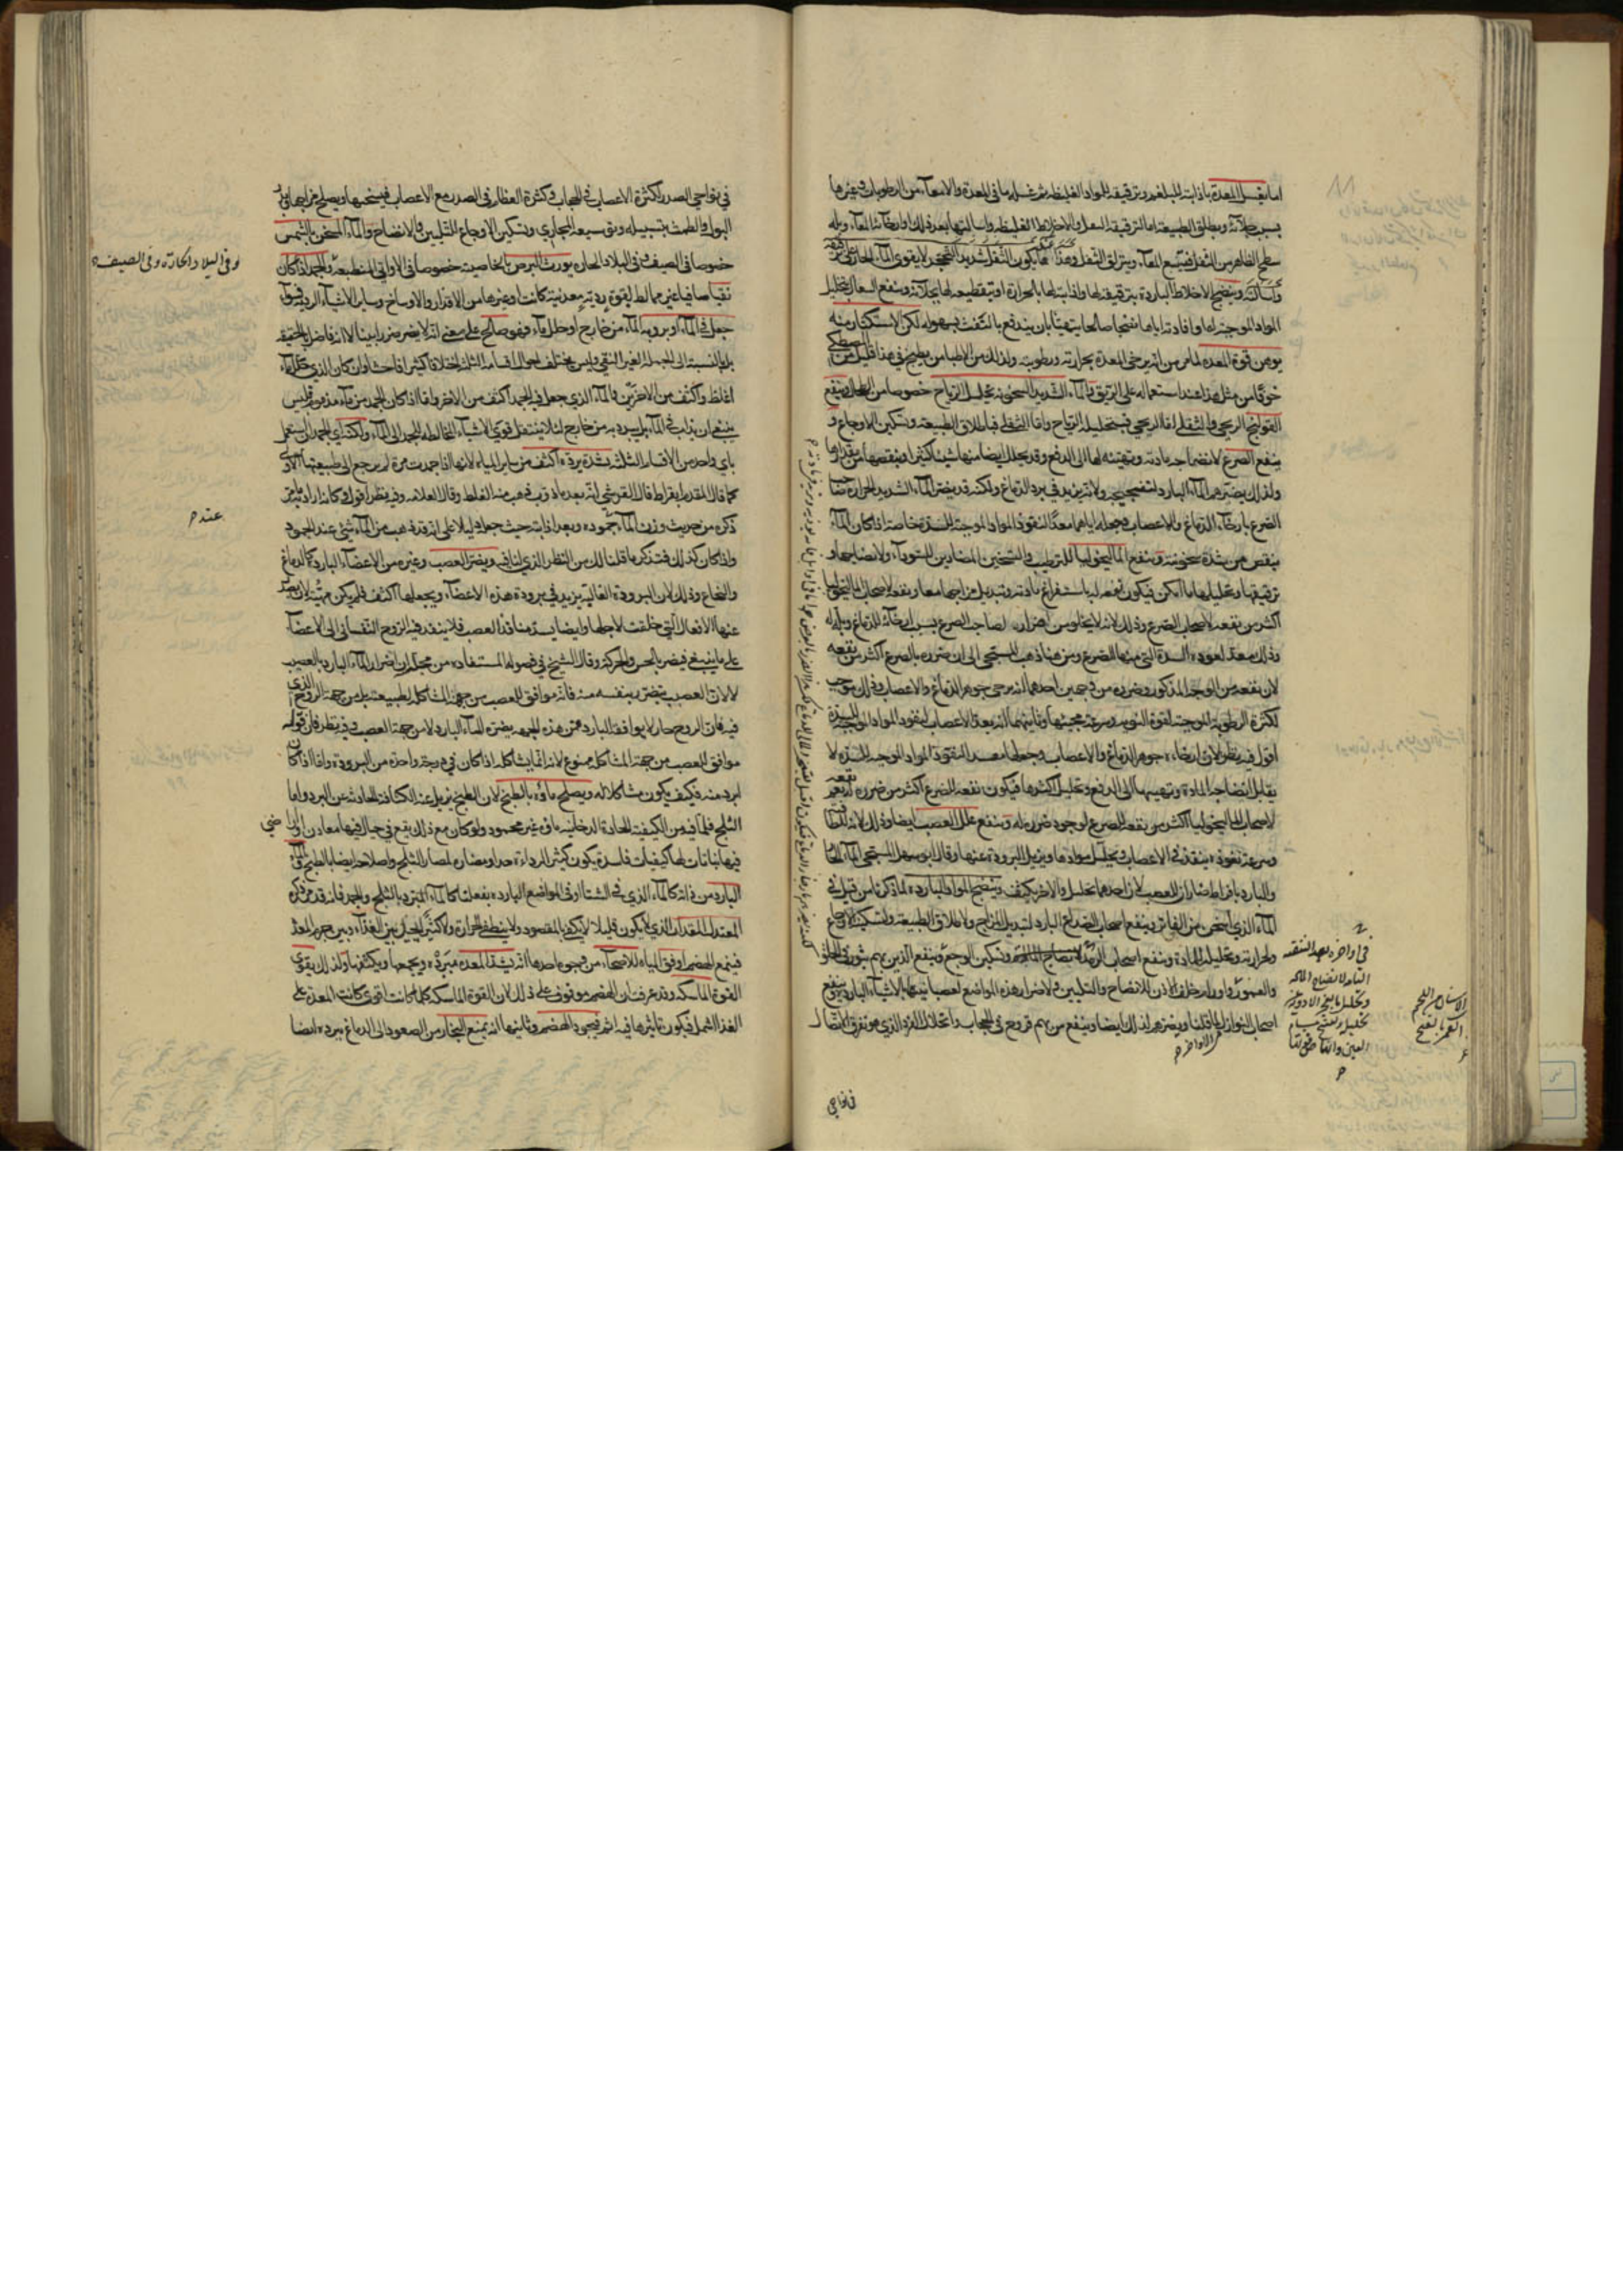 اما يغسل المعدة باذابته البلغم وترقيقه المواد الغليظة ثم غسله ما في المعدة والامعاء من الرطوبات وغيرها
بسبب جلائه ويطلق الطبيعة اما لترقيقه الثفل والاخلاط الغليظة واسالتها بعد ذلك واما لارخائه المعاء وبله
سطح الظاهر من الثفل فيتسع المعاء وينزلق الثفل وهذا
واسالته وينضج الاخلاط الباردة بترقيقه لها واذابته لها بالحرارة او بتقطيعه لها بجلائه وينفع السعال بتحليل
المواد الموجبة له وافادته اياها نضجا صالحا بتهيئا بان يندفع بالنفث بسهولة لكن الاستكثار منه
يوهن قوة المعدة لما مر من انه يرخي المعدة بحرارته ورطوبته ولذلك من الاطباء من يطبخ في هذا قليل من المصطكى
خوفا من مثل هذا عند استعماله على الريق والماء الشديد السخونة يحلل الرياح خصوصا من الطحال وينفع
القولنج الريحي والثفلي اما الريحي فبتحليله الرياح واما الثفلي فباطلاق الطبيعة وتسكين الاوجاع و
ينفع الصرع لانضاجه مادته وتهيئته لها الى الدفع وقد يحلل ايضا منها شيئا كثيرا وينقصها من مقدارها
ولذلك يضرهم الماء البارد لتفجيجه ولانه يزيد في برد الدماغ ولكنه قد يضر الماء الشديد الحرارة صاحب
الصرع بارخاء الدماغ والاعصاب وجعله اياهما معدا لنفوذ المواد الموجبة للسدة خاصة اذا كان الماء
ينقص من شدة سخونته وينفع الماليخوليا للترطيب والتسخين المضادين للسوداء ولانضاجها و
ترقيقها وتحليلها ما امكن فيكون نفعه له باستفراغ مادته وتبديل مزاجها معا ونفعه لاصحاب الماليخوليا
اكثر من نفعه لاصحاب الصرع وذلك لانه لا يخلو من اضرار لصاحب الصرع بسبب ارخائه للدماغ وبله له
وذلك معد لعود السدة التي منها الصرع ومن هنا ذهب المسيحي الى ان ضرره بالصرع اكثر من نفعه
لان نفعه من الوجه المذكور وضرره من وجهين احدهما انه يرخي جوهر الدماغ والاعصاب وذلك موجب
لكثرة الرطوبة الموجبة لقوة النوبة وسرعة مجيئها وثانيهما انه يعد الاعصاب لنفوذ المواد الموجبة للسدة
اقول فيه نظر لان ارخاءه جوهر الدماغ والاعصاب وجعلها معدة لنفوذ المواد الموجبة للسدة لا
يقابل انضاجه المادة وتهييئها الى الدفع وتحليل اكثرها فيكون نفعه للصرع اكثر من ضرره نعم نفعه
لاصحاب الماليخوليا اكثر من نفعه للصرع لوجود ضرره له وينفع علل العصب ايضا وذلك لانه للطافته
وسرعة نفوذه ينفذ في الاعصاب ويحلل موادها ويزيل البرودة عنها وقال ابو سهل المسيحي الماء الحار
والبارد بافراط ضاران للعصب لان احدهما يحلل والاخر يكثف وينضج المواد الباردة لما ذكرنا من قبل في
الماء الذي اسخن من الفاتر وينفع اصحاب الصداع البارد لتبديل المزاج ولاطلاق الطبيعة ولتسكينه الاوجاع
ولحرارته وتحليله المادة وينفع اصحاب الرمد لانضاج المادة وتسكين الوجع وينفع الذين بهم بثور في الحلق
والعمور واورام خلف الاذن للانضاح والتليين ولاضرار هذه المواضع لعصبانيتها بالاشياء الباردة وينفع
اصحاب النوازل لما قلنا ويضرهم لذلك ايضا وينفع من بهم قروح في الحجاب وانحلال الفرد الذي هو تفرق الاتصال
في نواحي
في اواخره بعد التنقية
التامة لانضاج المادة
العين
الاسنان
في نواحي الصدر لكثرة الاعصاب في الحجاب وكثرة العظام في الصدر مع الاعصاب فيسخنها ويصلح مزاجها ويدر
البول والطمث بتسييله وتوسيعه المجاري وتسكين الاوجاع للتليين والانضاح والماء المسخن بالشمس
خصوصا في الصيف في البلاد الحارة يورث البرص بالخاصية خصوصا في الاواني المنطبعة والجمد اذا كان
نقيا صافيا غير مخالط لقوة ردية معدنية كانت او غيرها من الاقذار والاوساخ وساير الاشياء الردية فسواء
جعل في الماء او برد به الماء من خارج او حلل ماء فهو صالح على معنى انه لا يضر ضررا بينا لا انه فاضل بالحقيقة
بل بالنسبة الى الجمد الغير النقي وليس يختلف احوال اقسامه الثلثة اختلافا كثيرا فاحشا وان كان الذي حلل ماء
اغلظ واكثف من الاخرين والماء الذي جعل فيه الجمد اكثف من الاخر واما اذا كان الجمد من ماء مذموم فليس
ينبغي ان يذاب في الماء بل يبرد به من خارج لئلا ينتقل قوى الاشياء المخالطة للجمد الى الماء ولكنه اي الجمد ان استعمل
باي واحد من الاقسام الثلثة بشدة برده اكثف من ساير المياه لانها اذا جمدت مرة لم يرجع الى طبيعتها الاولى
كما قال المقدم ابقراط قال القرشي انه بعد ما ذوب ذهب منه الغلظ وقال العلامة وفيه نظر اقول وكانه اراد به ما مر
ذكره من حديث وزن الماء جموده وبعد اذابته حيث جعله دليلا على انه قد ذهب من الماء شيء عند الجمود
واذا كان كذلك فتذكر ما قلنا لك من النظر الذي لنا فيه ويضر العصب وغيره من الاعضاء الباردة كالدماغ
والنخاع وذلك لان البرودة الغالبة يزيد في برودة هذه الاعضاء ويجعلها اكثف فلم يكن مهيئة لان يصدر
عنها الافعال التي خلقت لاجلها وايضا يسد منافذ العصب فلا ينفذ فيه الروح النفساني الى الاعضاء
على ما ينبغي فيضر بالحس والحركة وقال الشيخ في فصوله المستفادة من مجلس اضرار الماء البارد بالعصب
لا لان العصب يتضرر بنفسه منه فانه موافق للعصب من جهة المشاكلة لطبيعته بل من جهة الروح الذي
فيه فان الروح حار لا يوافقه البارد فمن هذه الجهة يضره الماء البارد لا من جهة العصب وفيه نظر فان قوله
موافق للعصب من جهة المشاكلة ممنوع لانه انما يشاكله اذا كان في درجة واحدة من البرودة واما اذا كان
ابرد منه فكيف يكون مشاكلا له ويصلح ماؤه بالطبخ لان الطبخ يزيل عنه الكثافة الحادثة عن البرد واما
الثلج فلما فيه من الكيفية الحادة الدخانية ماؤه غير محمود ولو كان مع ذلك يقع في جبال فيها معادن او اراضي
فيها نباتات لها كيفيات فاسدة يكون كثير الرداءة جدا ومضاره لمضار الثلج واصلاحه ايضا بالطبخ والماء
البارد من ذاته كالماء الذي في الشتاء او في المواضع الباردة بفعلنا كالماء المبرد بالثلج والجمد فانه قد مر ذكره
المعتدل المقدار الذي لا يكون قليلا لا يكفي المقصود ولا ينطفئ الحرارة ولا كثيرا يحيل بين الغذاء وبين جرم المعدة
فيمنع الهضم اوفق المياه للاصحاء من وجوه احدها انه يشد المعدة ببرده ويجمعها ويكثفها ولذلك يقوى
القوة الماسكة وقد عرفت ان الهضم موقوف على ذلك لان القوة الماسكة كلما كانت اقوى كانت المعدة على
الغذاء اشمل فيكون تاثيرها فيه اثر فيجود الهضم وثانيها انه يمنع البخار من الصعود الى الدماغ ببرده ايضا
وفي البلاد الحارة وفي الصيف
عنده